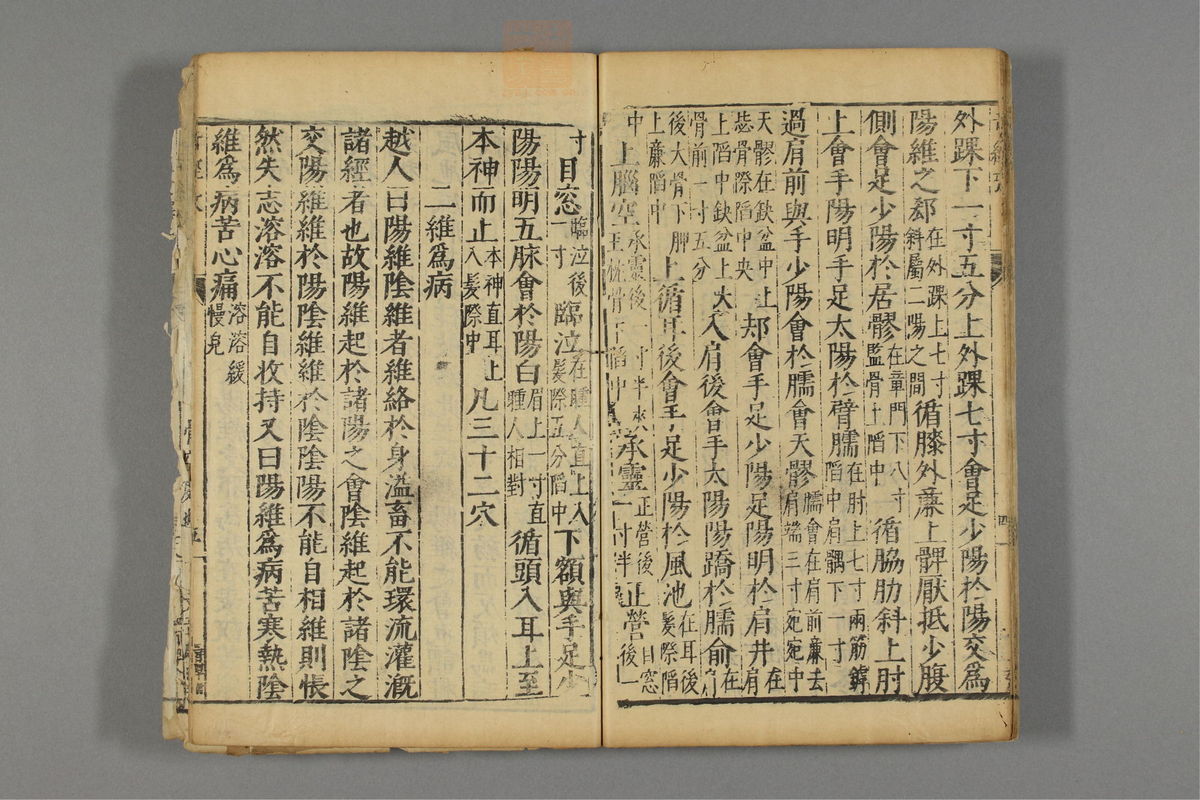 外踝下一寸五分上外踝七寸會足少陽於陽交爲
陽維之郄在外踝上七寸斜屬二陽之間循膝外廉上髀厭抵少腹
側會足少陽於居髎在章門下八寸監骨上陷中循脇肋斜上肘
上會手陽明手足太陽於臂臑在肘上七寸兩筋罅陷中肩髃下一寸
過肩前與手少陽會於臑會天髎臑會在肩前廉去肩端三寸宛宛中
天髎在缺盆中上毖骨際陷中央却會手足少陽足陽明於肩井在肩
上陷中缺盆上大骨前一寸五分入肩後會手太陽陽蹻於臑俞在肩
後大骨下胛上廉陷中上循耳後會手足少陽於風池在耳後髮際陷
中上腦空承靈後一寸半夾玉枕骨下陷中承靈正營後一寸半正營目窓後一
寸目窓臨泣後一寸臨泣在瞳人直上入髮際五分陷中下額與手足少
陽陽明五脉會於陽白眉上一寸直瞳人相對循頭入耳上至
本神而止本神直耳上入髮際中凡三十二穴
二維爲病
越人曰陽維陰維者維絡於身溢畜不能環流灌溉
諸經者也故陽維起於諸陽之會陰維起於諸陰之
交陽維維於陽陰維維於陰陰陽不能自相維則悵
然失志溶溶不能自收持又曰陽維爲病苦寒熱陰
維爲病苦心痛溶溶緩慢皃